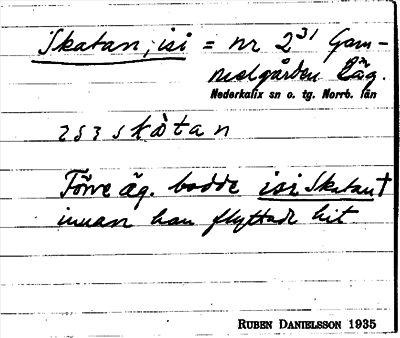 Skatan, isi = nr 2³¹ Gam-
melgården läg.
Nederkalix sn o. tg. Norrb. län
skàtan
Förre äg. bodde isi Skatan†
innan han flyttade hit.
RUBEN DANIELSSON 1935